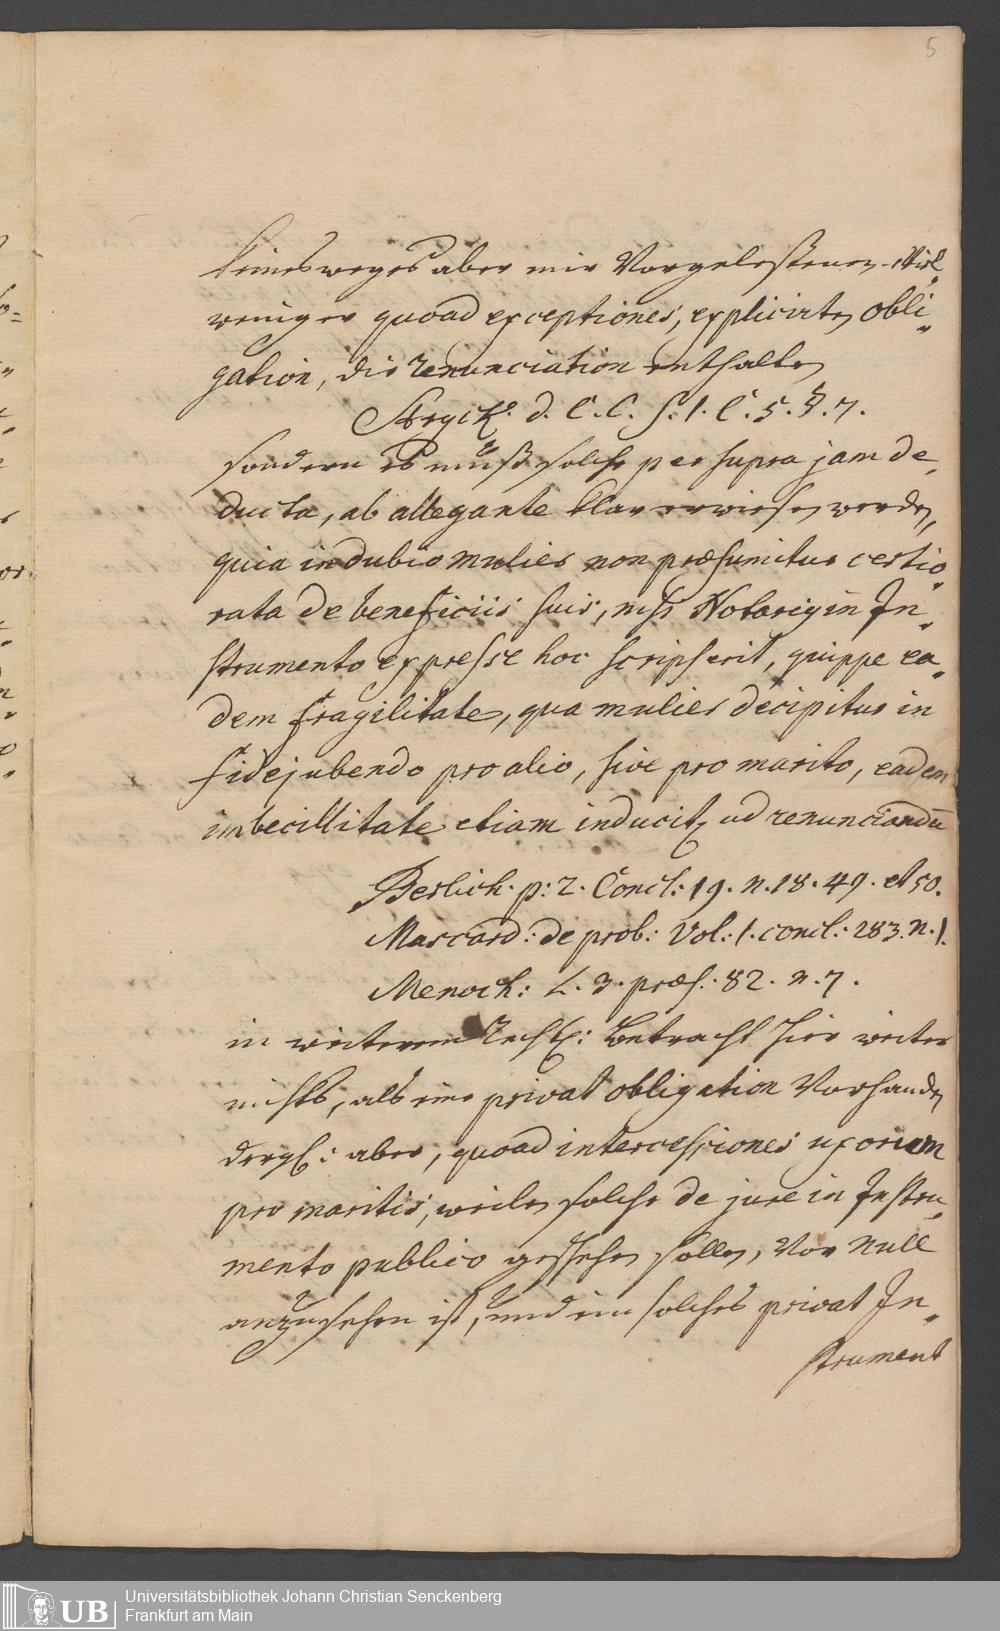 5
keinesweges aber mir Vorgelessenen. Viel„
weniger quoad exceptiones, explicirten obli„
gation, die renunciation enthalten
Stryck. d. C. C. S. 1. C. 5. §. 7.
sondern es muß solche per supra jam de„
ducta, ab allegante klar erwiesen werden,
quia in dubio mulier non præsumitur certio„
rata de beneficiis suis, nisi Notarius in In„
strumento expresse hoc scripserit, quippe ea„
dem fragilitate, qua mulier decipitur in
fidejubendo pro alio, sive pro marito, eadem
imbecillitate etiam inducitur ad renunciandū
Berlich. p: 2. Concl: 19. n. 18. 49. et 50.
Mascard: de prob: Vol: 1. concl: 283. n. 1.
Menoch: L. 3. præs: 82. n. 7.
in weiterem Rechtl: betracht hier weiter
nichts, als eine privat obligation Vorhanden
dergl: aber, quoad intercessiones uxorum
pro maritis, weilen solche de jure in Instru„
mento publico geschehen sollen, Vor null
anzusehen ist, und ein solches privat In„
strument
UB Universitätsbibliothek Johann Christian Senckenberg
Frankfurt am Main